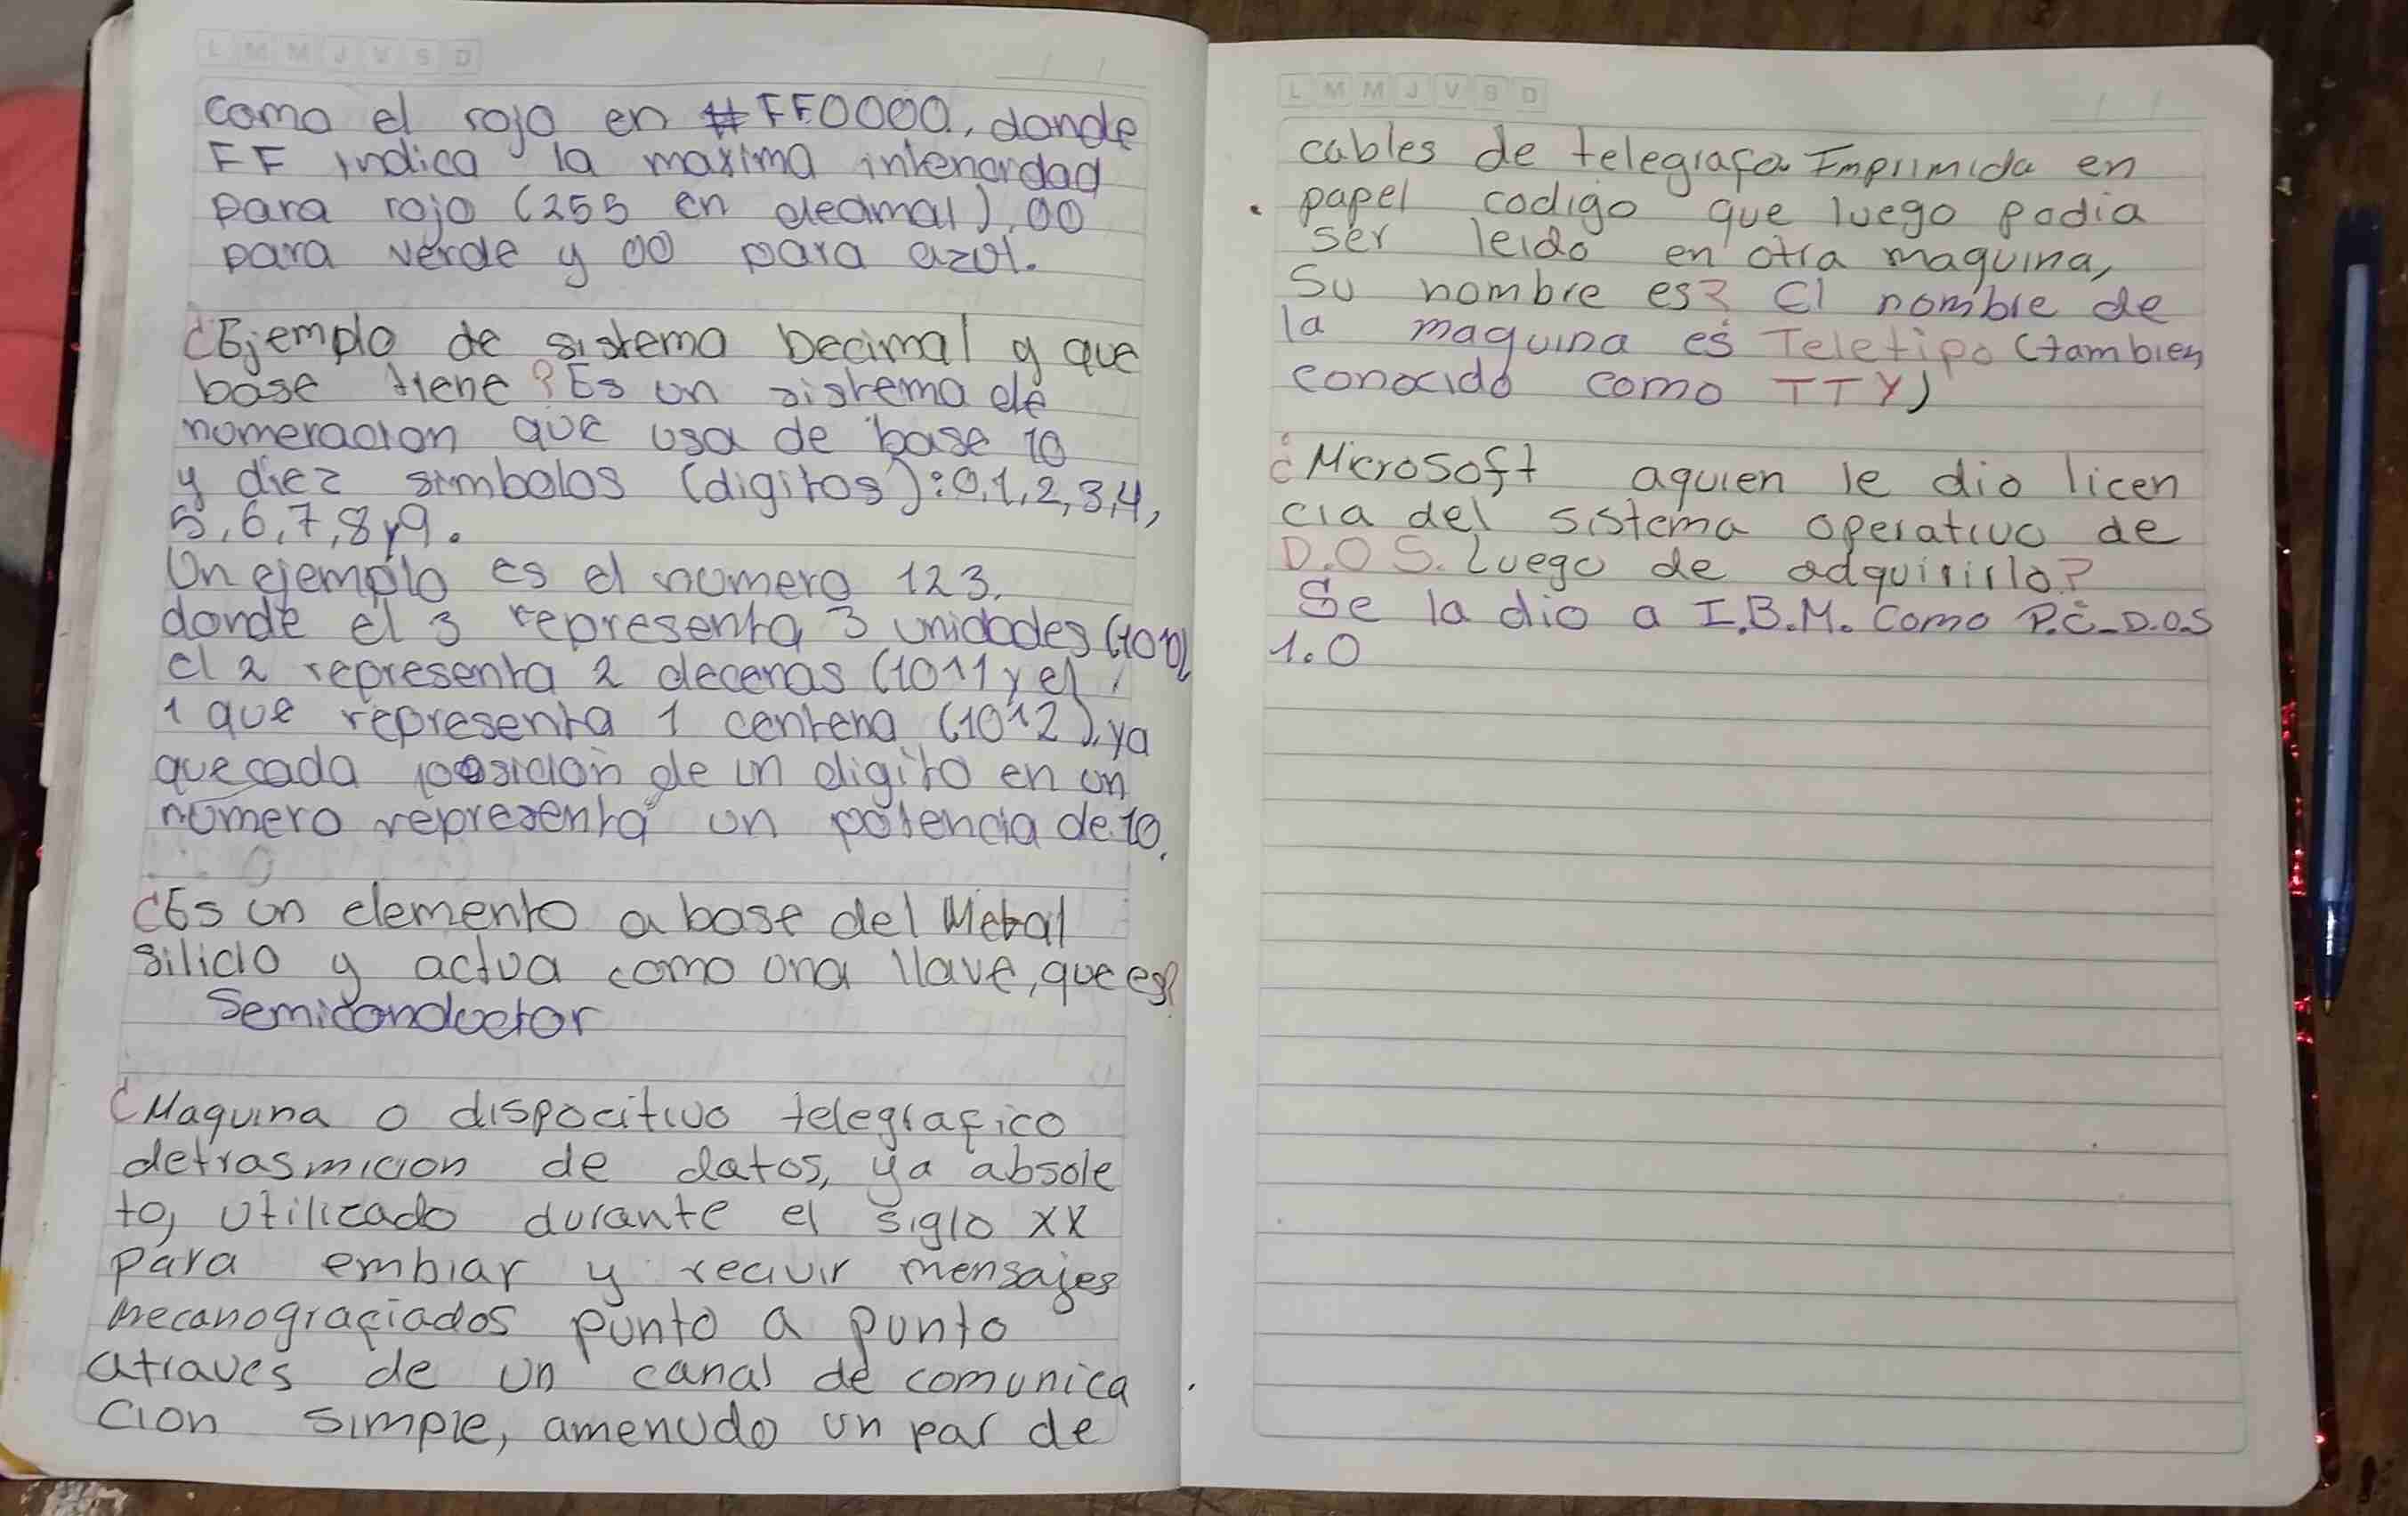 L M M J V S D
como el rojo en #FF0000, donde
FF indica la maxima intenardad
para rojo (255 en decimal), 00
para verde y 00 para azul.
¿Ejemplo de sistema Decimal y que
base tiene? Es un sistema de
numeracion que usa de base 10
y diez simbolos (digitos): 0,1,2,3,4,
5,6,7,8y9.
Un ejemplo es el numero 123.
donde el 3 representa 3 unidades
el 2 representa 2 decenas (10^1) y el
1 que representa 1 centena (10^2), ya
que cada posicion de un digito en un
numero representa un potencia de 10.
¿Es un elemento a base del Metal
silicio y actua como una llave, que es?
Semiconductor
¿Maquina o dispocitivo telegrafico
detrasmicion de datos, ya absole
to, utilizado durante el siglo XX
para embiar y recivir mensajes
mecanografiados punto a punto
atraves de un canal de comunica
cion simple, amenudo un par de
L M M J V S D
cables de telegrafo. Imprimida en
papel codigo que luego podia
ser leido en otra maquina,
Su nombre es? El nombre de
la maquina es Teletipo (tambien
conocido como TTY)
¿Microsoft aquien le dio licen
cia del sistema operativo de
D.O.S. luego de adquirirlo?
Se la dio a I.B.M. como P.C-D.O.S
1.0